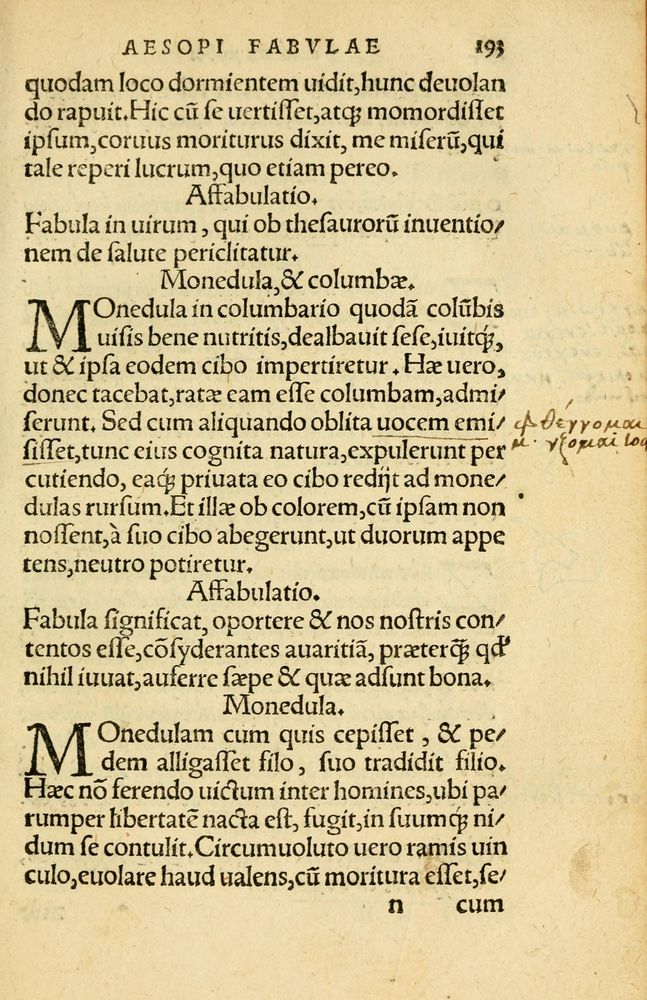 AESOPI FABVLAE 193
quodam loco dormientem uidit,hunc deuolan
do rapuit.Hic cū se uertisset,atq; momordisset
ipsum,coruus moriturus dixit, me miserū,qui
tale reperi lucrum,quo etiam pereo.
Affabulatio.
Fabula in uirum, qui ob thesaurorū inuentio/
nem de salute periclitatur.
Monedula,& columbæ.
MOnedula in columbario quodā colūbis
uisis bene nutritis,dealbauit sese,iuitq;,
ut & ipsa eodem cibo impertiretur. Hæ uero,
donec tacebat,ratæ eam esse columbam,admi/
serunt. Sed cum aliquando oblita uocem emi/
φθέγγομαι
sisset,tunc eius cognita natura,expulerunt per
cutiendo, eaq; priuata eo cibo redijt ad mone/
dulas rursum.Et illæ ob colorem,cū ipsam non
nossent,à suo cibo abegerunt,ut duorum appe
tens,neutro potiretur.
Affabulatio.
Fabula significat, oportere & nos nostris con/
tentos esse,cōsyderantes auaritiā, præterq̄ qd
nihil iuuat,auferre sæpe & quæ adsunt bona.
Monedula.
MOnedulam cum quis cepisset, & pe/
dem alligasset filo, suo tradidit filio.
Hæc nō ferendo uictum inter homines,ubi pa/
rumper libertatē nacta est, fugit,in suumq; ni/
dum se contulit.Circumuoluto uero ramis uin
culo,euolare haud ualens,cū moritura esset,se/
n cum